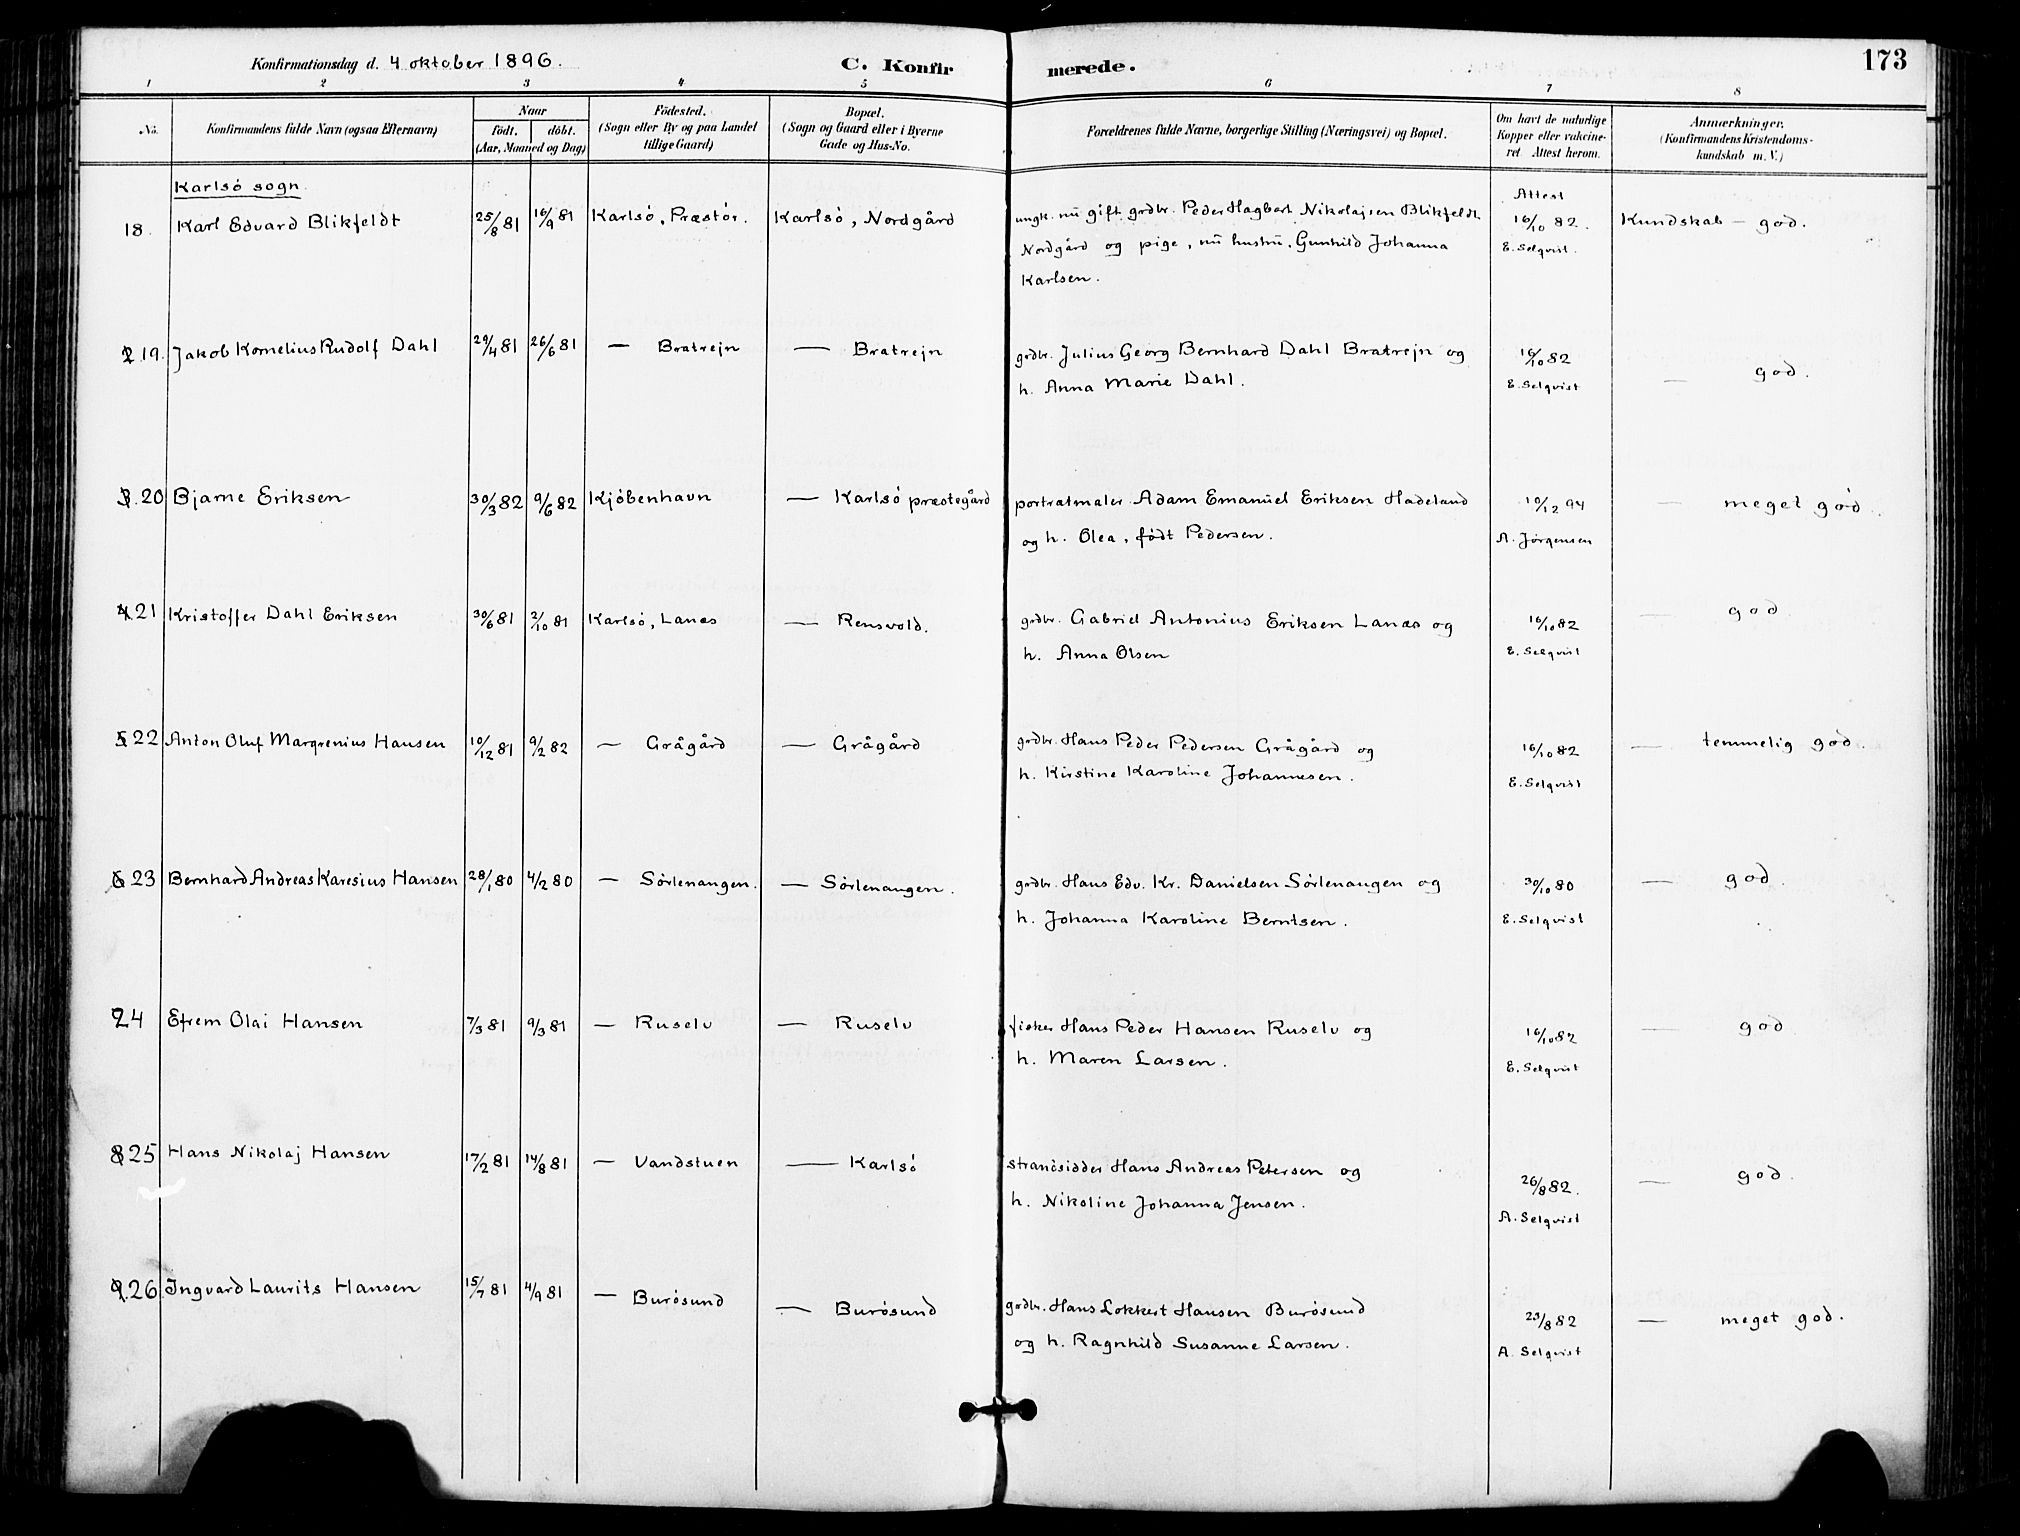 Konfirmationsdag d. 4 oktober 1896.
C. Konfirmerede.
173
1 2 3 4 5 6 7 8
No.
Konfirmandens fulde Navn (ogsaa Efternavn)
Naar
født. døbt.
(Aar, Maaned og Dag)
Fødested.
(Sogn eller By og paa Landet
tillige Gaard)
Bopæl.
(Sogn og Gaard eller i Byerne
Gade og Hus-No.
Forældrenes fulde Navne, borgerlige Stilling (Næringsvei) og Bopæl.
Om havt de naturlige
Kopper eller vakcine-
ret. Attest herom.
Anmærkninger.
(Konfirmandens Kristendoms-
kundskab m. V.)
Karlsö sogn.
18. Karl Edvard Blikfeldt 25/8 81 16/9 81 Karlsö, Præstör. Karlsö, Nordgård
ungk. nu gift grdbr. Peder Hagbart Nikolajsen Blikfeldt
Nordgård og pige, nu hustru, Gunhild Johanna
Karlsen.
Attest
16/10 82.
E. Selqvist.
Kundskab — god.
2 19. Jakob Kornelius Rudolf Dahl 29/4 81 26/6 81 — Bratrejn — Bratrejn
grdbr. Julius Georg Bernhard Dahl Bratrejn og
h. Anna Marie Dahl.
16/10 82
E. Selqvist
— god.
3. 20 Bjarne Eriksen 30/3 82 9/6 82 Kjöbenhavn — Karlsö præstegård
portrætmaler Adam Emanuel Eriksen Hadeland
og h. Olea, födt Pedersen.
10/12 94
A. Jörgensen
— meget god.
4. 21 Kristoffer Dahl Eriksen 30/6 81 2/10 81 Karlsö, Lanæs — Rensvold.
grdbr. Gabriel Antonius Eriksen Lanæs og
h. Anna Olsen
16/10 82
E. Selqvist
— god
5 22 Anton Oluf Margrenius Hansen 10/12 81 9/2 82 — Grågård — Grågård
grdbr. Hans Peder Pedersen Grågård og
h. Kirstine Karoline Johannesen.
16/10 82
E. Selqvist
— temmelig god.
6 23 Bernhard Andreas Karesius Hansen 28/1 80 4/2 80 — Sörlenangen. — Sörlenangen.
grdbr. Hans Edv. Kr. Danielsen Sörlenangen og
h. Johanna Karoline Berntsen.
30/10 80
E. Selqvist
— god.
24 Efrem Olai Hansen 7/3 81 9/3 81 — Ruselv — Ruselv
fisker Hans Peder Hansen Ruselv og
h. Maren Larsen.
16/10 82
E. Selqvist
— god
8 25 Hans Nikolaj Hansen 17/2 81 14/8 81 — Vandstuen — Karlsö
strandsidder Hans Andreas Petersen og
h. Nikoline Johanna Jensen.
26/8 82.
A. Selqvist
— god.
9. 26 Ingvard Laurits Hansen 15/7 81 4/9 81 — Burösund — Burösund
grdbr. Hans Lokkert Hansen Burösund
og h. Ragnhild Susanne Larsen.
23/8 82
A. Selqvist
— meget god.